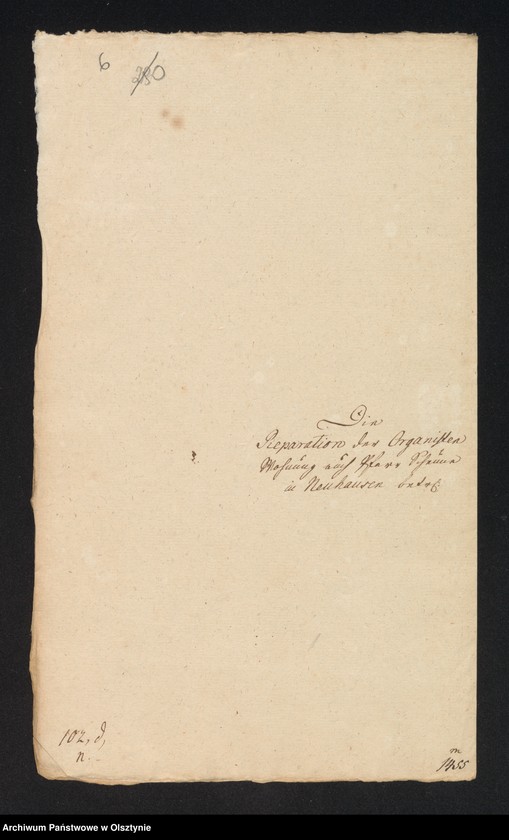 6 230
Die
Reparation der Organisten
Wohnung auch Pfarr Scheune
in Neuhausen betr.
102, d,
n.
m
1455
Archiwum Państwowe w Olsztynie